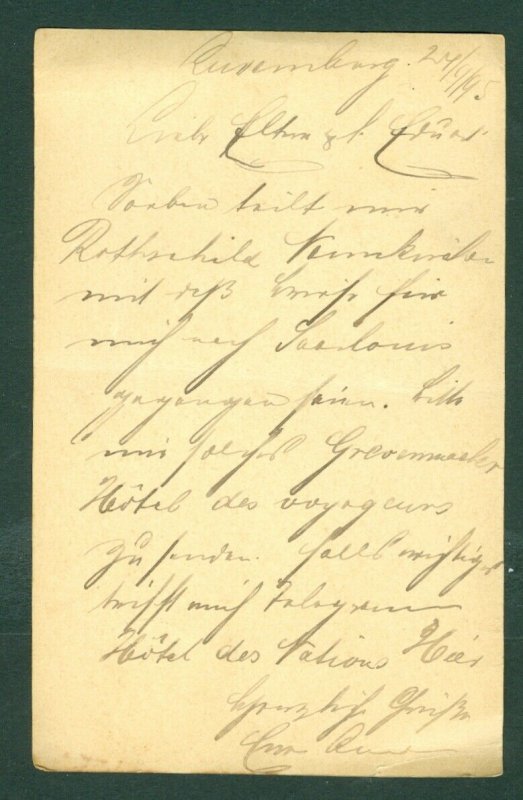 Luxemburg. 24/9/95
Liebe Eltern & l. Eduard
Soeben teilt mir
Rothschild Neunkirchen
mit daß Briefe für
mich nach Saarlouis
gegangen seien. Bitte
mir solche Grevenmacher
Hôtel des voyageurs
zu senden. Falls wichtiges
trifft mich Telegramm
Hôtel des Nations Hier
Herzliche Grüße